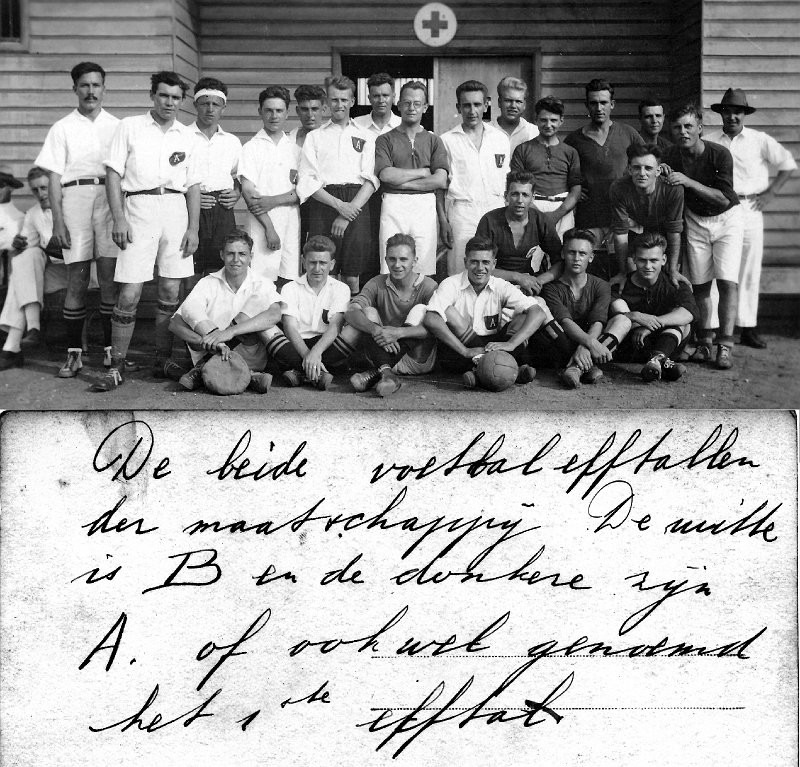 A
A
De beide voetbal efftallen
der maatschappij De witte
is B en de donkere zijn
A. of ook wel genoemd
het 1ste efftal